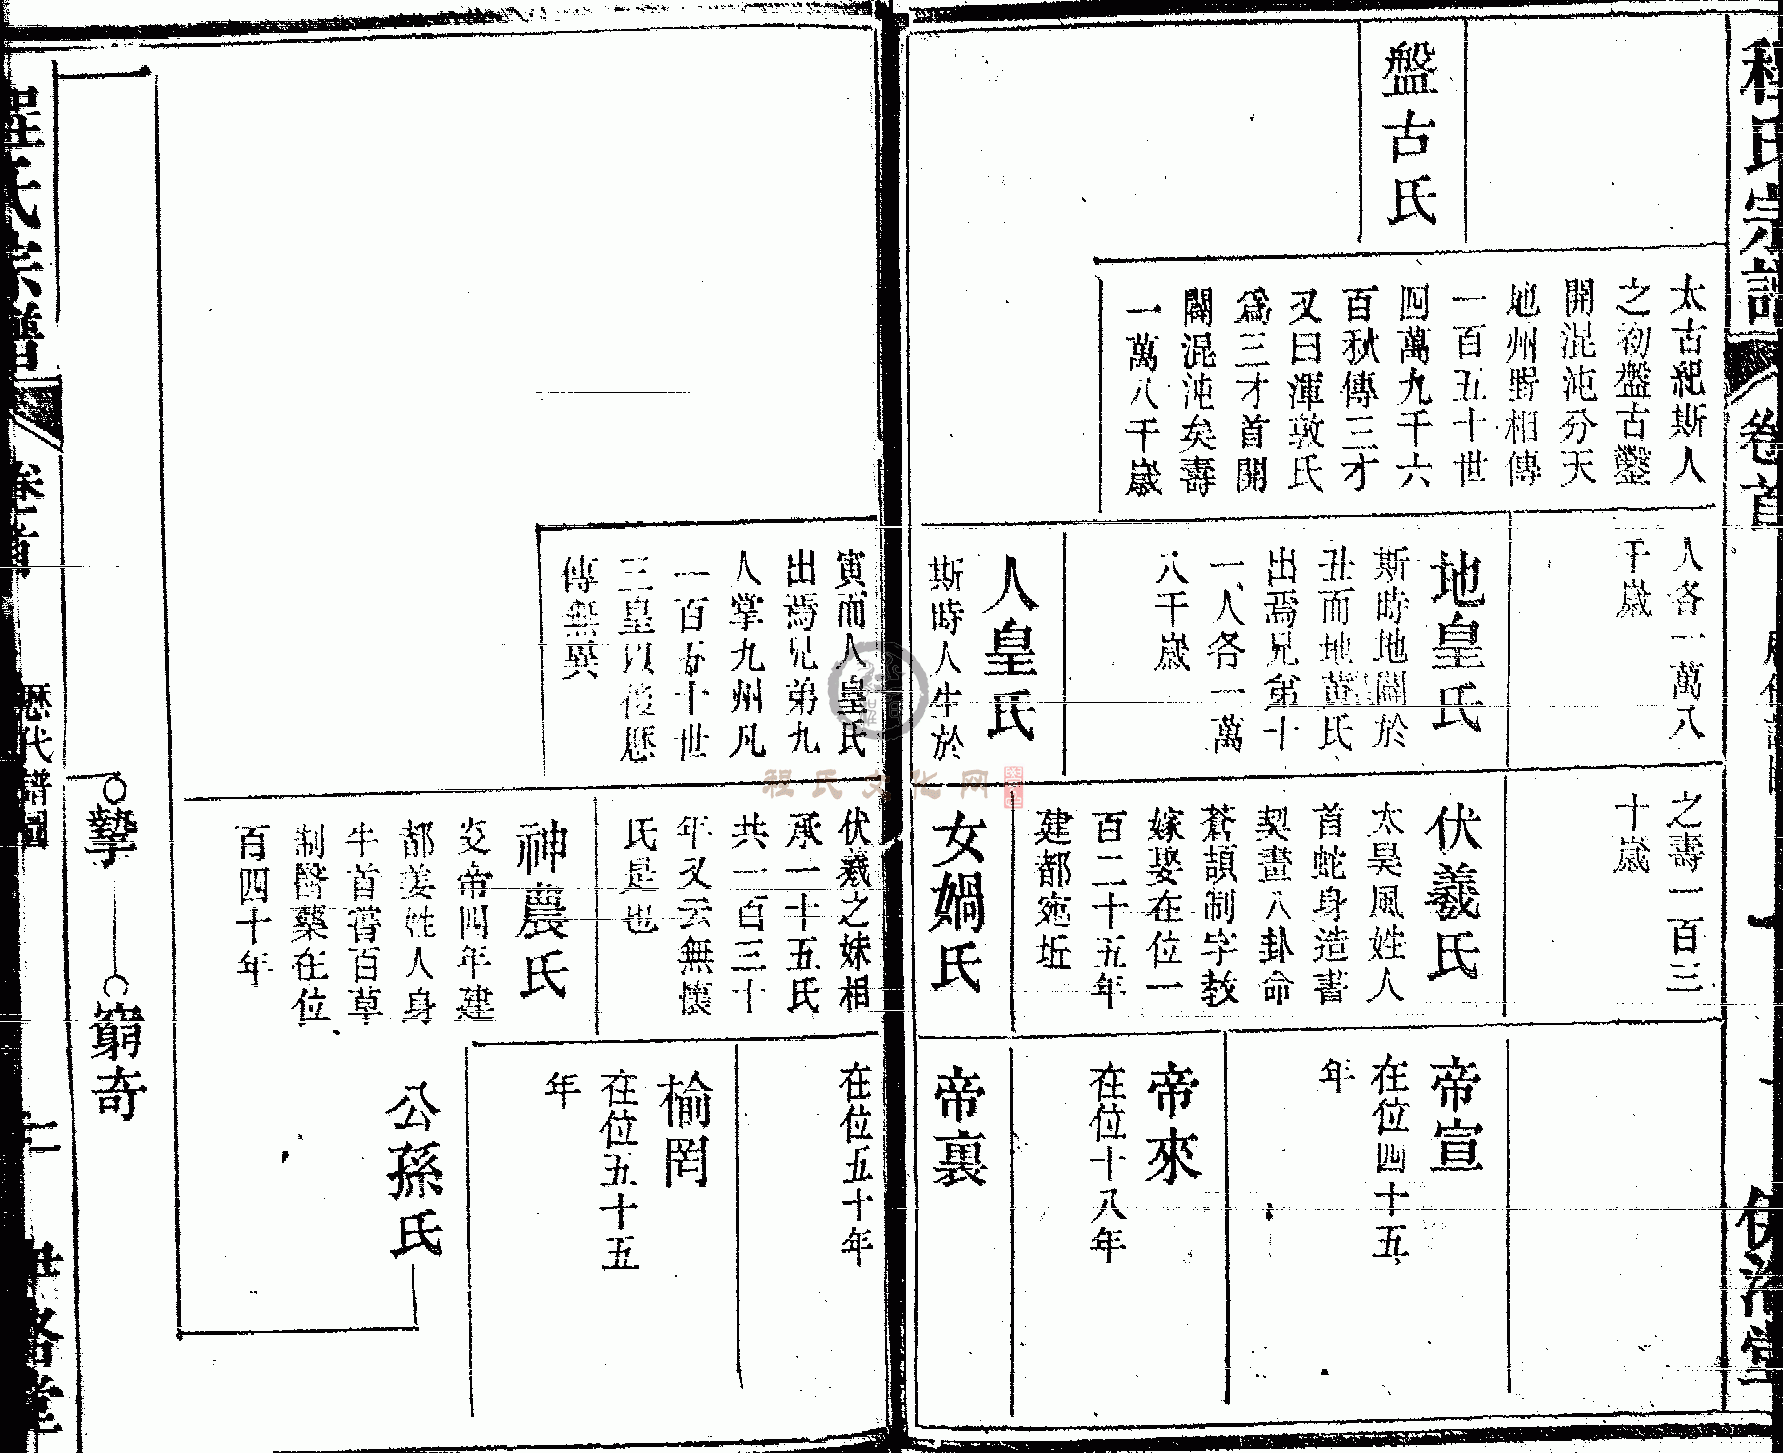 程氏宗譜
卷首
伊洛堂
盤古氏
太古紀斯人
之初盤古鑿
開混沌分天
地州野相傳
一百五十世
四萬九千六
百秋傳三才
又曰渾敦氏
爲三才首開
闢混沌矣壽
一萬八千歲
人各一萬八
千歲
地皇氏
斯時地闢於
丑而地黄氏
出焉兄弟十
一人各一萬
八千歲
人皇氏
斯時人生於
寅而人皇氏
出焉兄弟九
人掌九州凡
一百五十世
三皇以後歷
傳無異
之壽一百三
十歲
伏羲氏
太昊風姓人
首蛇身造書
契畫八卦命
蒼頡制字教
嫁娶在位一
百二十五年
建都宛坵
女媧氏
伏羲之妹相
承一十五氏
共一百三十
年又云無懷
氏是也
神農氏
炎帝四年建
都姜姓人身
牛首嘗百草
制醫藥在位
百四十年
帝宣
在位四十五
年
帝來
在位十八年
帝裏
在位五十年
榆罔
在位五十五
年
公孫氏
摯
窮奇
程氏宗譜
卷首
歷代譜圖
二
伊洛堂
程氏文化网